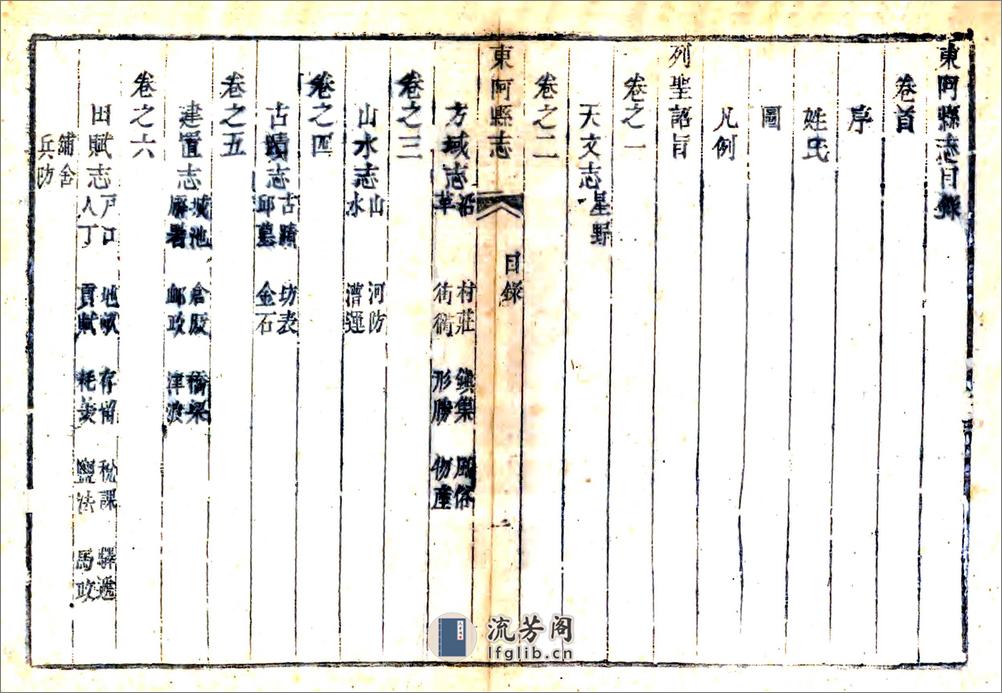 東阿縣志目錄
卷首
序
姓氏
圖
凡例
列聖詔旨
卷之一
天文志 星野
卷之二
東阿縣志 目錄 一
方域志 沿革 村莊 街衢 鎮集 形勝 風俗 物產
卷之三
山水志 山 水 河防 漕運
卷之四
古蹟志 古蹟 邱墓 坊表 金石
卷之五
建置志 城池 廨署 倉厫 郵政 橋梁 津渡
卷之六
田賦志 戶口 人丁 地畝 貢賦 存留 耗羨 稅課 鹽法 驛遞 馬政
鋪舍 兵防
流芳阁
lfglib.cn